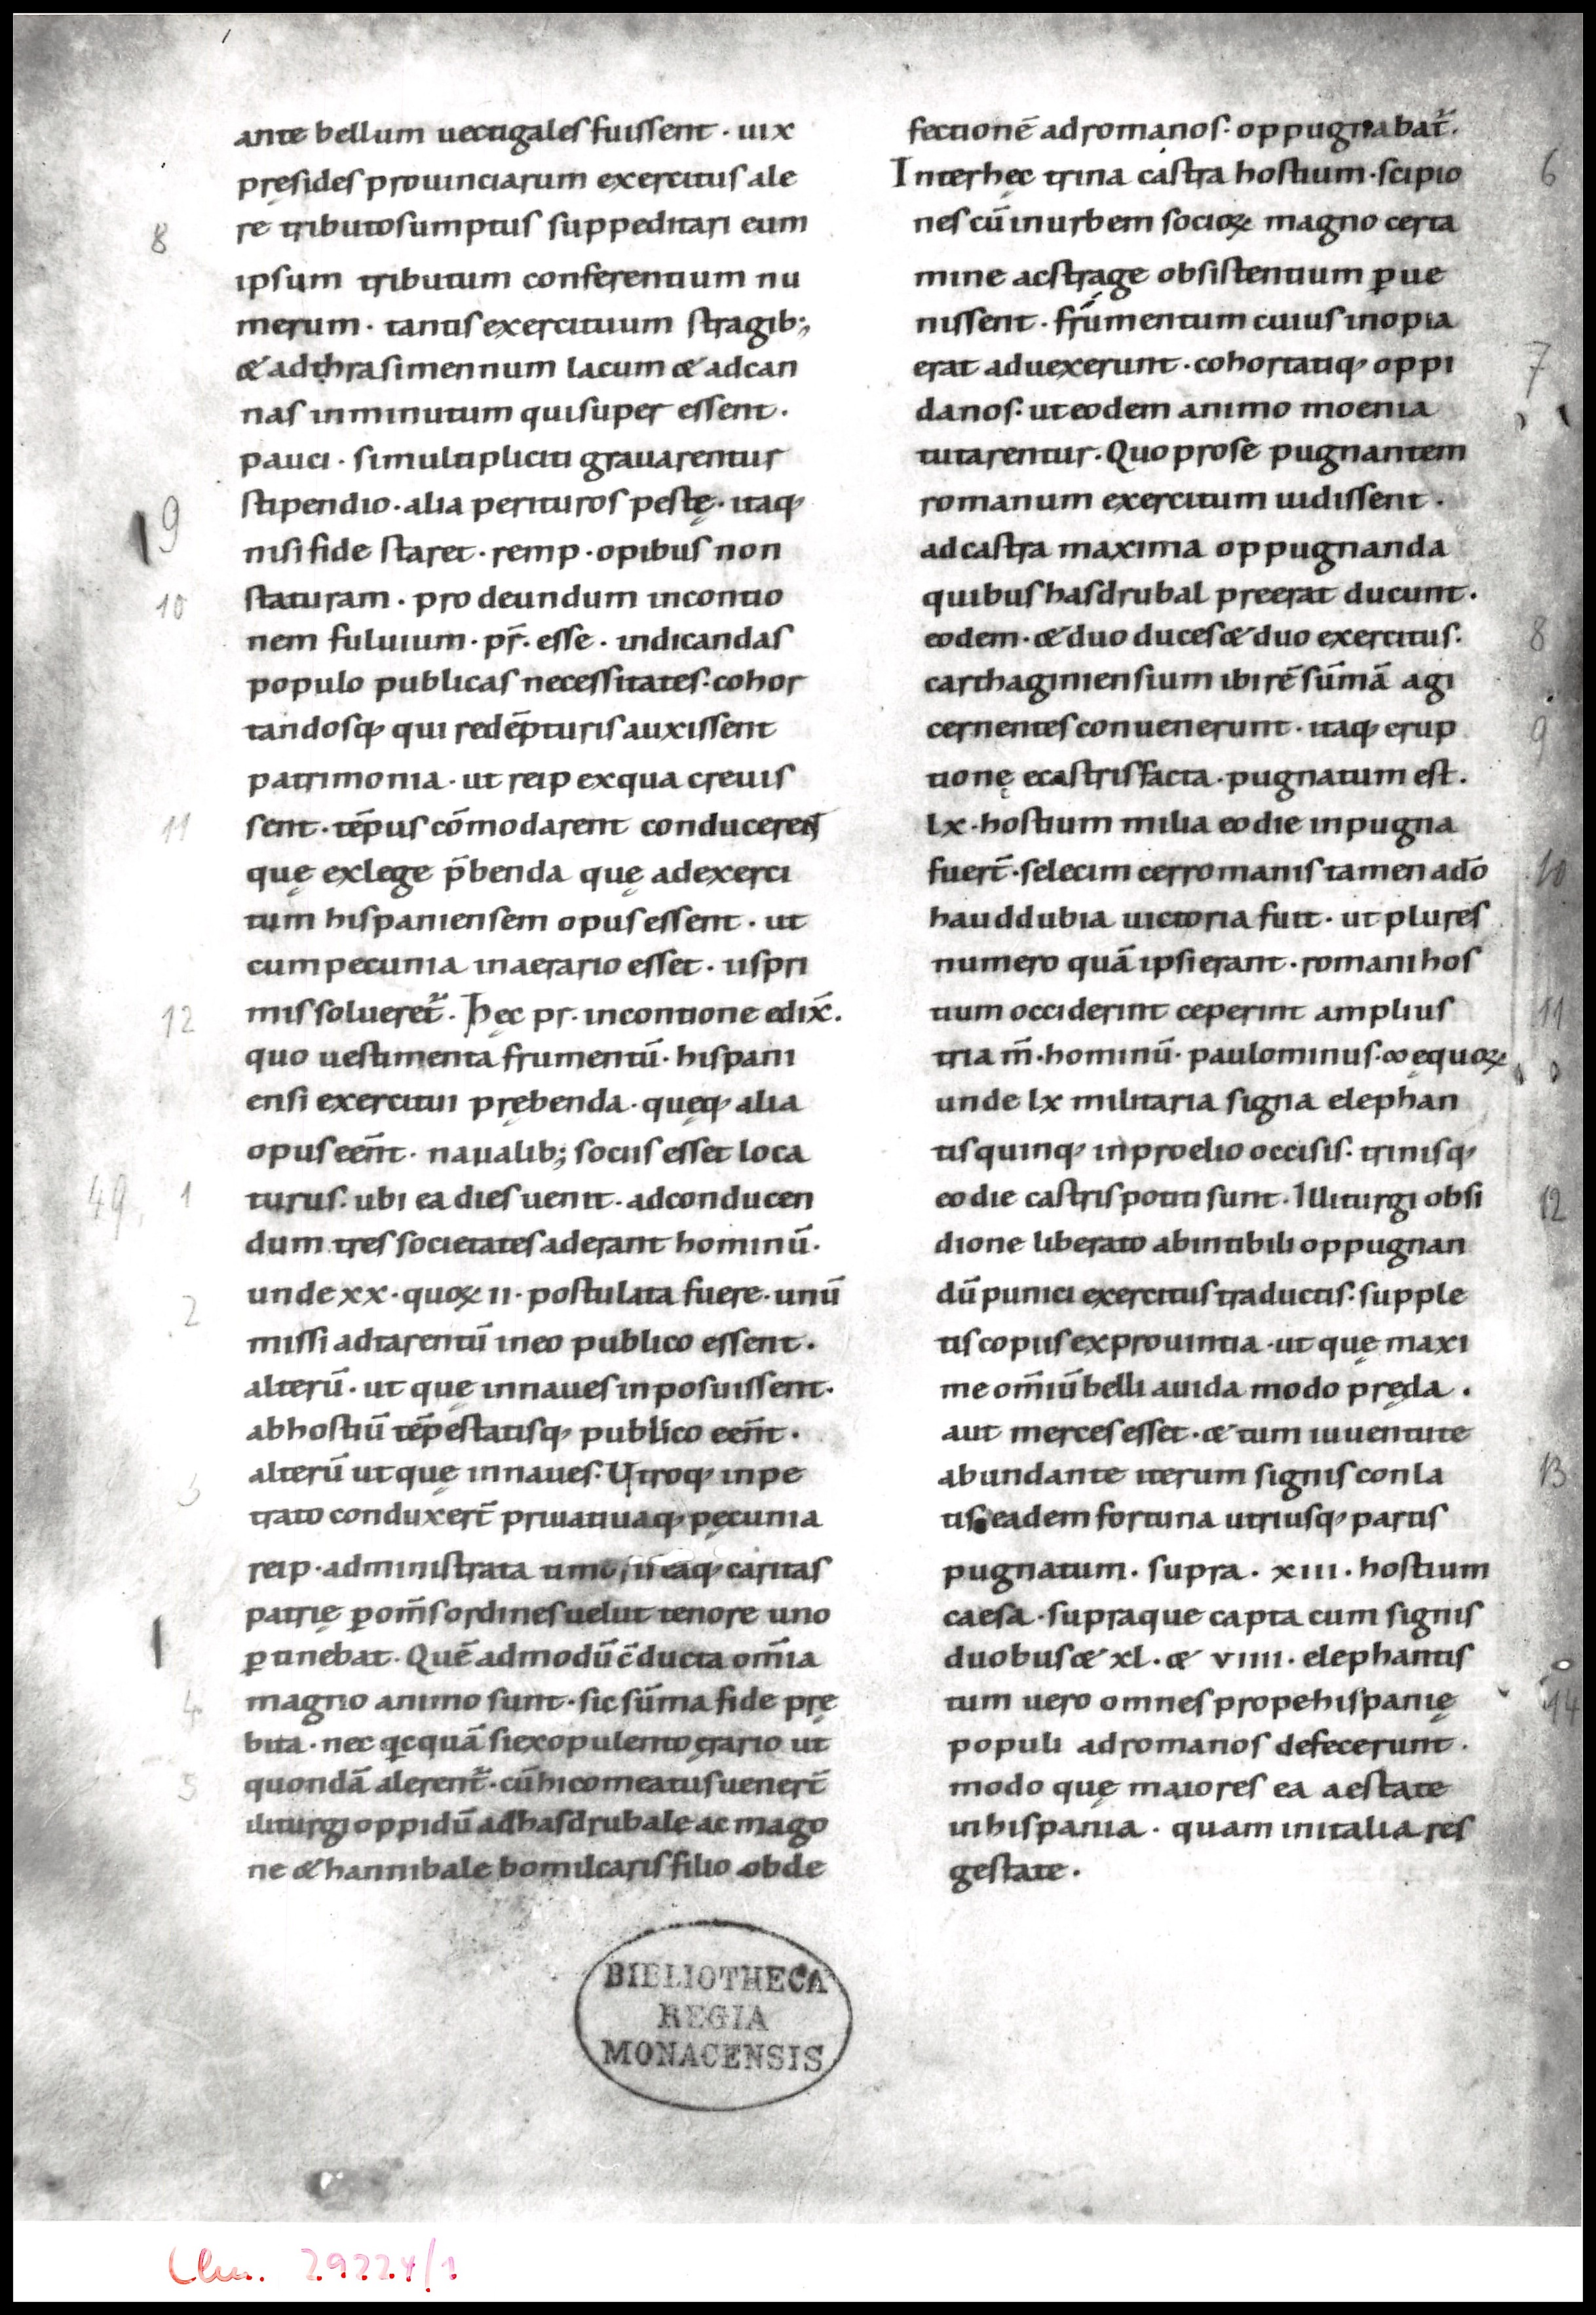 ante bellum uectigales fuissent · uix
pręsides prouinciarum exercitus ale
re tributo sumptus suppeditari eum
ipsum tributum conferentium nu
merum · tantis exercituum stragib;,
& adthrasimennum lacum & adcan
nas inminutum quisuper essent ·
pauci · simultipliciti grauarentur
stipendio · alia perituros pestę · itaq;
nisi fide staret · remp · opibus non
staturam · pro deundum incontio
nem fuluium · pr̄ · esse · indicandas
populo publicas necessitates · cohor
tandosq; qui redēpturis auxissent
patrimonia · ut reip exqua creuis
sent · tēpus cōmodarent conducerent
quę exlege p̄benda quę adexerci
tum hispaniensem opus essent · ut
cum pecunia inaerario esset · iispri
mis solueret̄ · hęc pr · incontione edix̄ ·
quo uestimenta frumentū · hispani
ensi exercitui prębenda · quęq; alia
opus eēnt · naualib; sociis esset loca
turus · ubi ea dies uenit · adconducen
dum tres societates aderant hominū ·
unde xx · quoꝝ ii · postulata fuere · unū
missi adtarentū ineo publico essent ·
alterū · ut quę innaues inposuissent ·
abhostiū tēpestatisq; publico eēnt ·
alterū ut quę innaues · Utroq; inpe
trato conduxer̄t priuatiuaq; pęcunia
reip · administrata caritas
patrię ꝑom̄s ordines uelut tenore uno
ꝑtinebat · Quē admodū c̄ducta om̄ia
magno animo sunt · sic sūma fide prę
bita · nec qcquā siexopulento ęrario ut
quondā alerent̄ · cū hi comeatus uener̄t
iliturgi oppidū adhasdrubalę ac mago
ne & hannibale bomilcaris filio obde
fectionē adromanos · oppugnabat̄ ·
Interhęc trina castra hostium · scipio
nes cū inurbem socioꝝ magno certa
mine acstrage obsistentium ꝑue
nissent · frūmentum cuius inopia
erat aduexerunt · cohortatiq; oppi
danos · ut eodem animo moenia
tutarentur · Quo prose pugnantem
romanum exercitum uidissent ·
adcastra maxima oppugnanda
quibus hasdrubal preerat ducunt ·
eodem · & duo duces & duo exercitus ·
carthaginiensium ibirē sūmā agi
cernentes conuenerunt · itaq; erup
tionę ecastris facta · pugnatum est ·
lx · hostium milia eo die inpugna
fuer̄t · selecim cerromanis tamen adō
hauddubia uictoria fuit · ut plures
numero quā ipsi erant · romani hos
tium occiderint ceperint amplius
tria m̄ · hominū · paulominus · ∞ ęquoꝝ
unde lx militaria signa elephan
tis quinq; inproelio occisis · trinisq;
eo die castris potiti sunt · Illiturgi obsi
dione liberato abintibili oppugnan
dū punici exercitus traductis · supple
tis copiis exprouintia · ut quę maxi
me om̄iū belli auida modo pręda ·
aut merces esset · & tum iuuentute
abundante iterum signis conla
tis eadem fortuna utriusq; partis
pugnatum · supra · xiii · hostium
caesa · supraque capta cum signis
duobus & xl · & viiii · elephantis
tum uero omnes prope hispanię
populi adromanos defecerunt ·
modo quę maiores ea aestate
inhispania · quam initalia res
gestate ·
6
7
8
9
10
11
12
13
14
8
9
10
11
12
49, 1
2
3
4
5
BIBLIOTHECA
REGIA
MONACENSIS
Clm. 29224/1